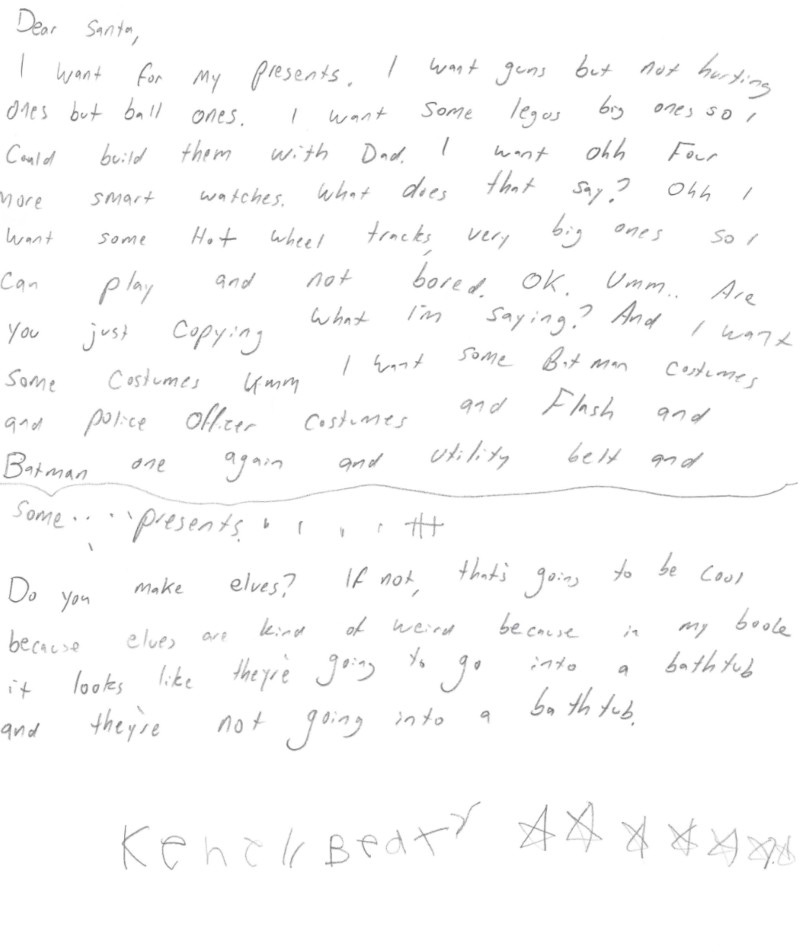 Dear Santa,
I want for my presents. I want guns but not hurting
ones but ball ones. I want some legos big ones so I
Could build them with Dad. I want Ohh Four
more smart watches. What does that say? Ohh I
want some Hot wheel tracks, very big ones so I
Can play and not bored. OK. Umm.. Are
you just Copying what I'm saying? And I want
Some Costumes Umm I want some Batman costumes
and police Officer costumes and Flash and
Batman one again and utility belt and
Some.. presents.
Do you make elves? If not, that's going to be cool
because elves are kind of weird because in my book
it looks like they're going to go into a bathtub
and they're not going into a bathtub.
Kenell Beaty